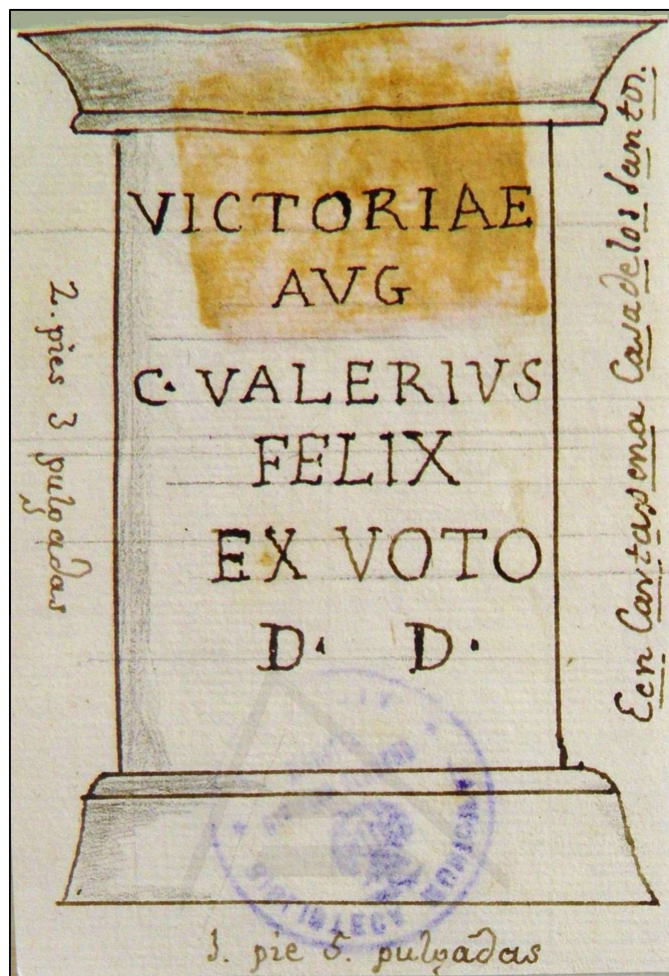 VICTORIAE
AVG
C· VALERIVS
FELIX
EX VOTO
D· D·
2. pies 3 pulgadas
Een Cartagena Casa de los Santos.
1. pie 5. pulgadas
BIBLIOTECA